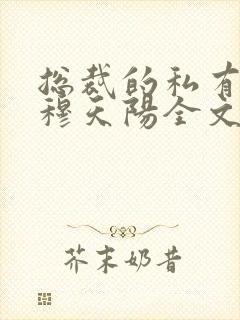 总裁的私有
穆天陽全文
芥末奶昔